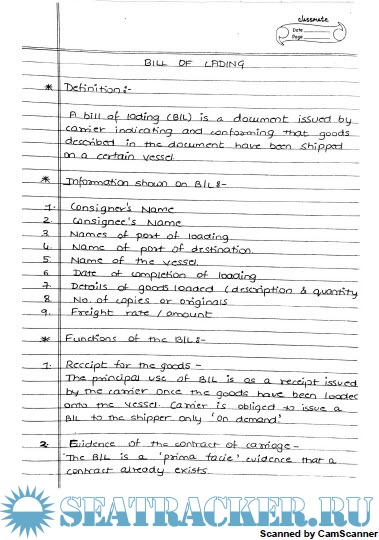 classmate
Date
Page
BILL OF LADING
* Definition:-
A bill of lading (B/L) is a document issued by
carrier indicating and conforming that goods
described in the document have been shipped
on a certain vessel.
* Information shown on B/L:-
1. Consigner's Name
2. Consignee's Name
3. Names of port of loading
4. Name of port of destination.
5. Name of the vessel.
6. Date of completion of loading
7. Details of goods loaded (description & quantity
8. No. of copies or originals
9. Freight rate / amount
* Functions of the B/L:-
1. Receipt for the goods -
The principal use of B/L is as a receipt issued
by the carrier once the goods have been loaded
onto the vessel. Carrier is obliged to issue a
B/L to the shipper only 'on demand'
2. Evidence of the contract of carriage -
The B/L is a 'prima facie' evidence that a
contract already exists.
SEATRACKER.RU
Scanned by CamScanner